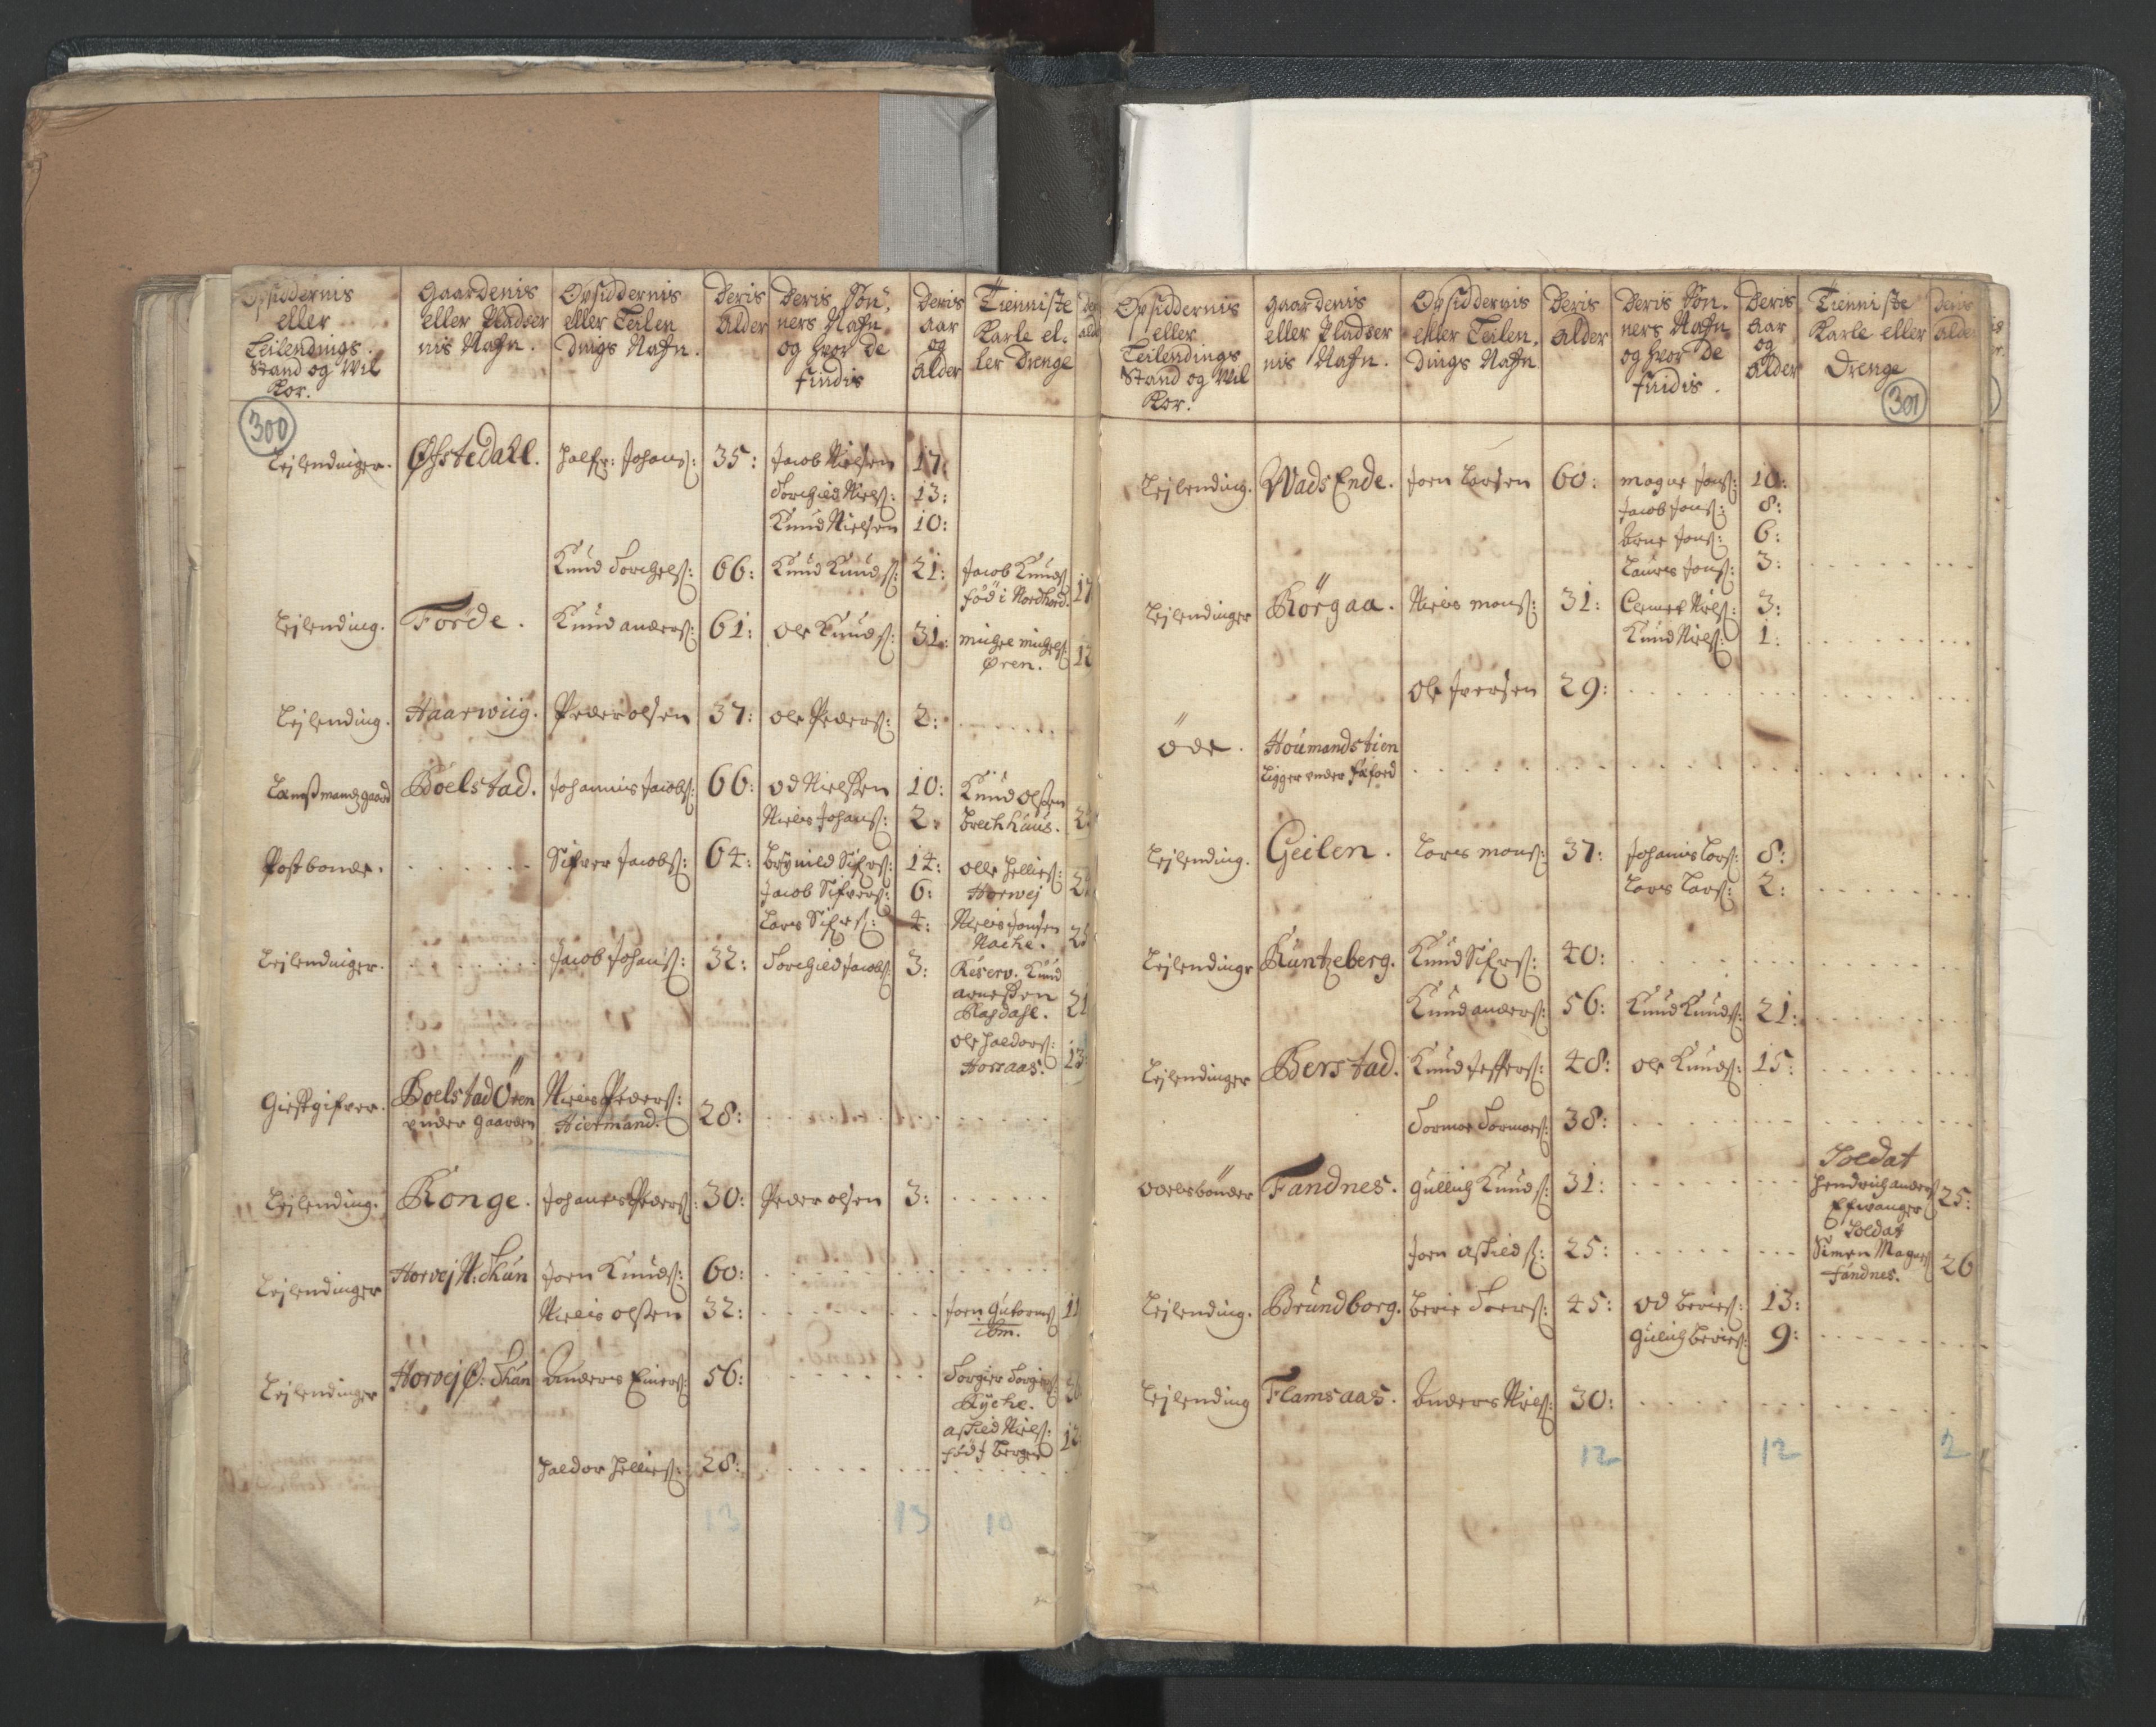 Opsiddernis
eller
Leilendings
Stand og Wil
Kor.
Gaardenis
eller Pladser
nis Nafn.
Opsiddernis
eller Leilen
dings Nafn.
Deris
Alder
Deris Søn-
ners Nafn
og hvor de
findis
Deris
Aar
og
Alder
Tienniste
Karle el-
ler Drenge
300
Lejlendinger. Øfstedall. Johans: 35: Jacob Nielsen 17:
Torchild Niels: 13:
Knud Nielsen 10:
Knud Torchels: 66: Knud Knuds: 21: Jacob Knuds
fød i Nordhord. 17
Lejlending. Førde. Knud anders: 61: Ole Knuds: 31: michel michels
Øren. 12
Lejlending. Haarwiig. Peder olsen 37: ole Peders: 2:
Lænsmands gaard Boelstad. Johannis Jacobs: 66: od Nielsen 10: Knud olsen
Niels Johans: 2: Brechhuus.
Postbonde. Sifver Jacobs: 64: Brynild Sifvers: 14: olle Hellies:
Jacob Sifvers: 6: Horwej
Lars Sifvers: 4: Niels Jonsen
Nache.
Lejlendinger. Jacob Johans: 32: Torchild Jacobs: 3: Reserv. Knud
arnesen
Rasdahl. 21
ole Haldors:
Horsaas. 13
Giestgifver. Boelstad Ören Niels Peders:
under gaarden Hiermand. 28:
Lejlending. Ronge. Johanes Peders: 30: Peder olsen 3:
Lejlendinger Horvej N: Thun Joen Knuds: 60:
Niels olsen 32: Joen Gutorms 11
ibm.
Lejlendinger Horvej Ø: Thun Anders Einers: 56: Torgier Torgiers
Kyche.
aschild Niels:
fød i Bergen
Haldor Hellies: 28:
13 13 10
Opsiddernis
eller
Leilendings
Stand og Wil
Kor.
Gaardenis
eller Pladser
nis Nafn.
Opsiddernis
eller Leilen-
dings Nafn
Deris
Alder
Deris Søn-
ners Nafn
og hvor De
findis.
Deris
Aar
og
Alder
Tienniste
Karle eller
Drenge
Deris
Alder
301
Lejlending. Wads Ende. Joen Larsen 60: magne Jons: 10:
Jacob Jons: 8:
Arne Jons: 6:
Laures Jons: 3:
Lejlendinger Körgaa. Niels mons: 31: Clemet Niels: 3:
Knud Niels: 1:
ole Iversen 29:
öde. Houmandstien
Ligger under
Lejlending. Geilen. Lars mons: 37: Johanis Lars: 8:
Lars Lars: 2:
Lejlendinger Kuntzeberg. Knud Sifvers: 40:
Knud anders: 56: Knud Knuds: 21:
Lejlendinger Berstad. Knud Jeffers: 48: ole Knuds: 15:
Tormoe Tormoes: 38:
odelsbönder Fandnes. Gullich Knuds: 31: Soldat
Hendrich anders
Efwanger 25:
Joen aschilds: 25: Soldat
Simen Magnes
Fandnes. 26
Lejlending. Brundborg. Berie Toers: 45: od Beries: 13:
Gulich Beries: 9:
Lejlending Flamsaas. Anders Niels: 30:
12 12 2